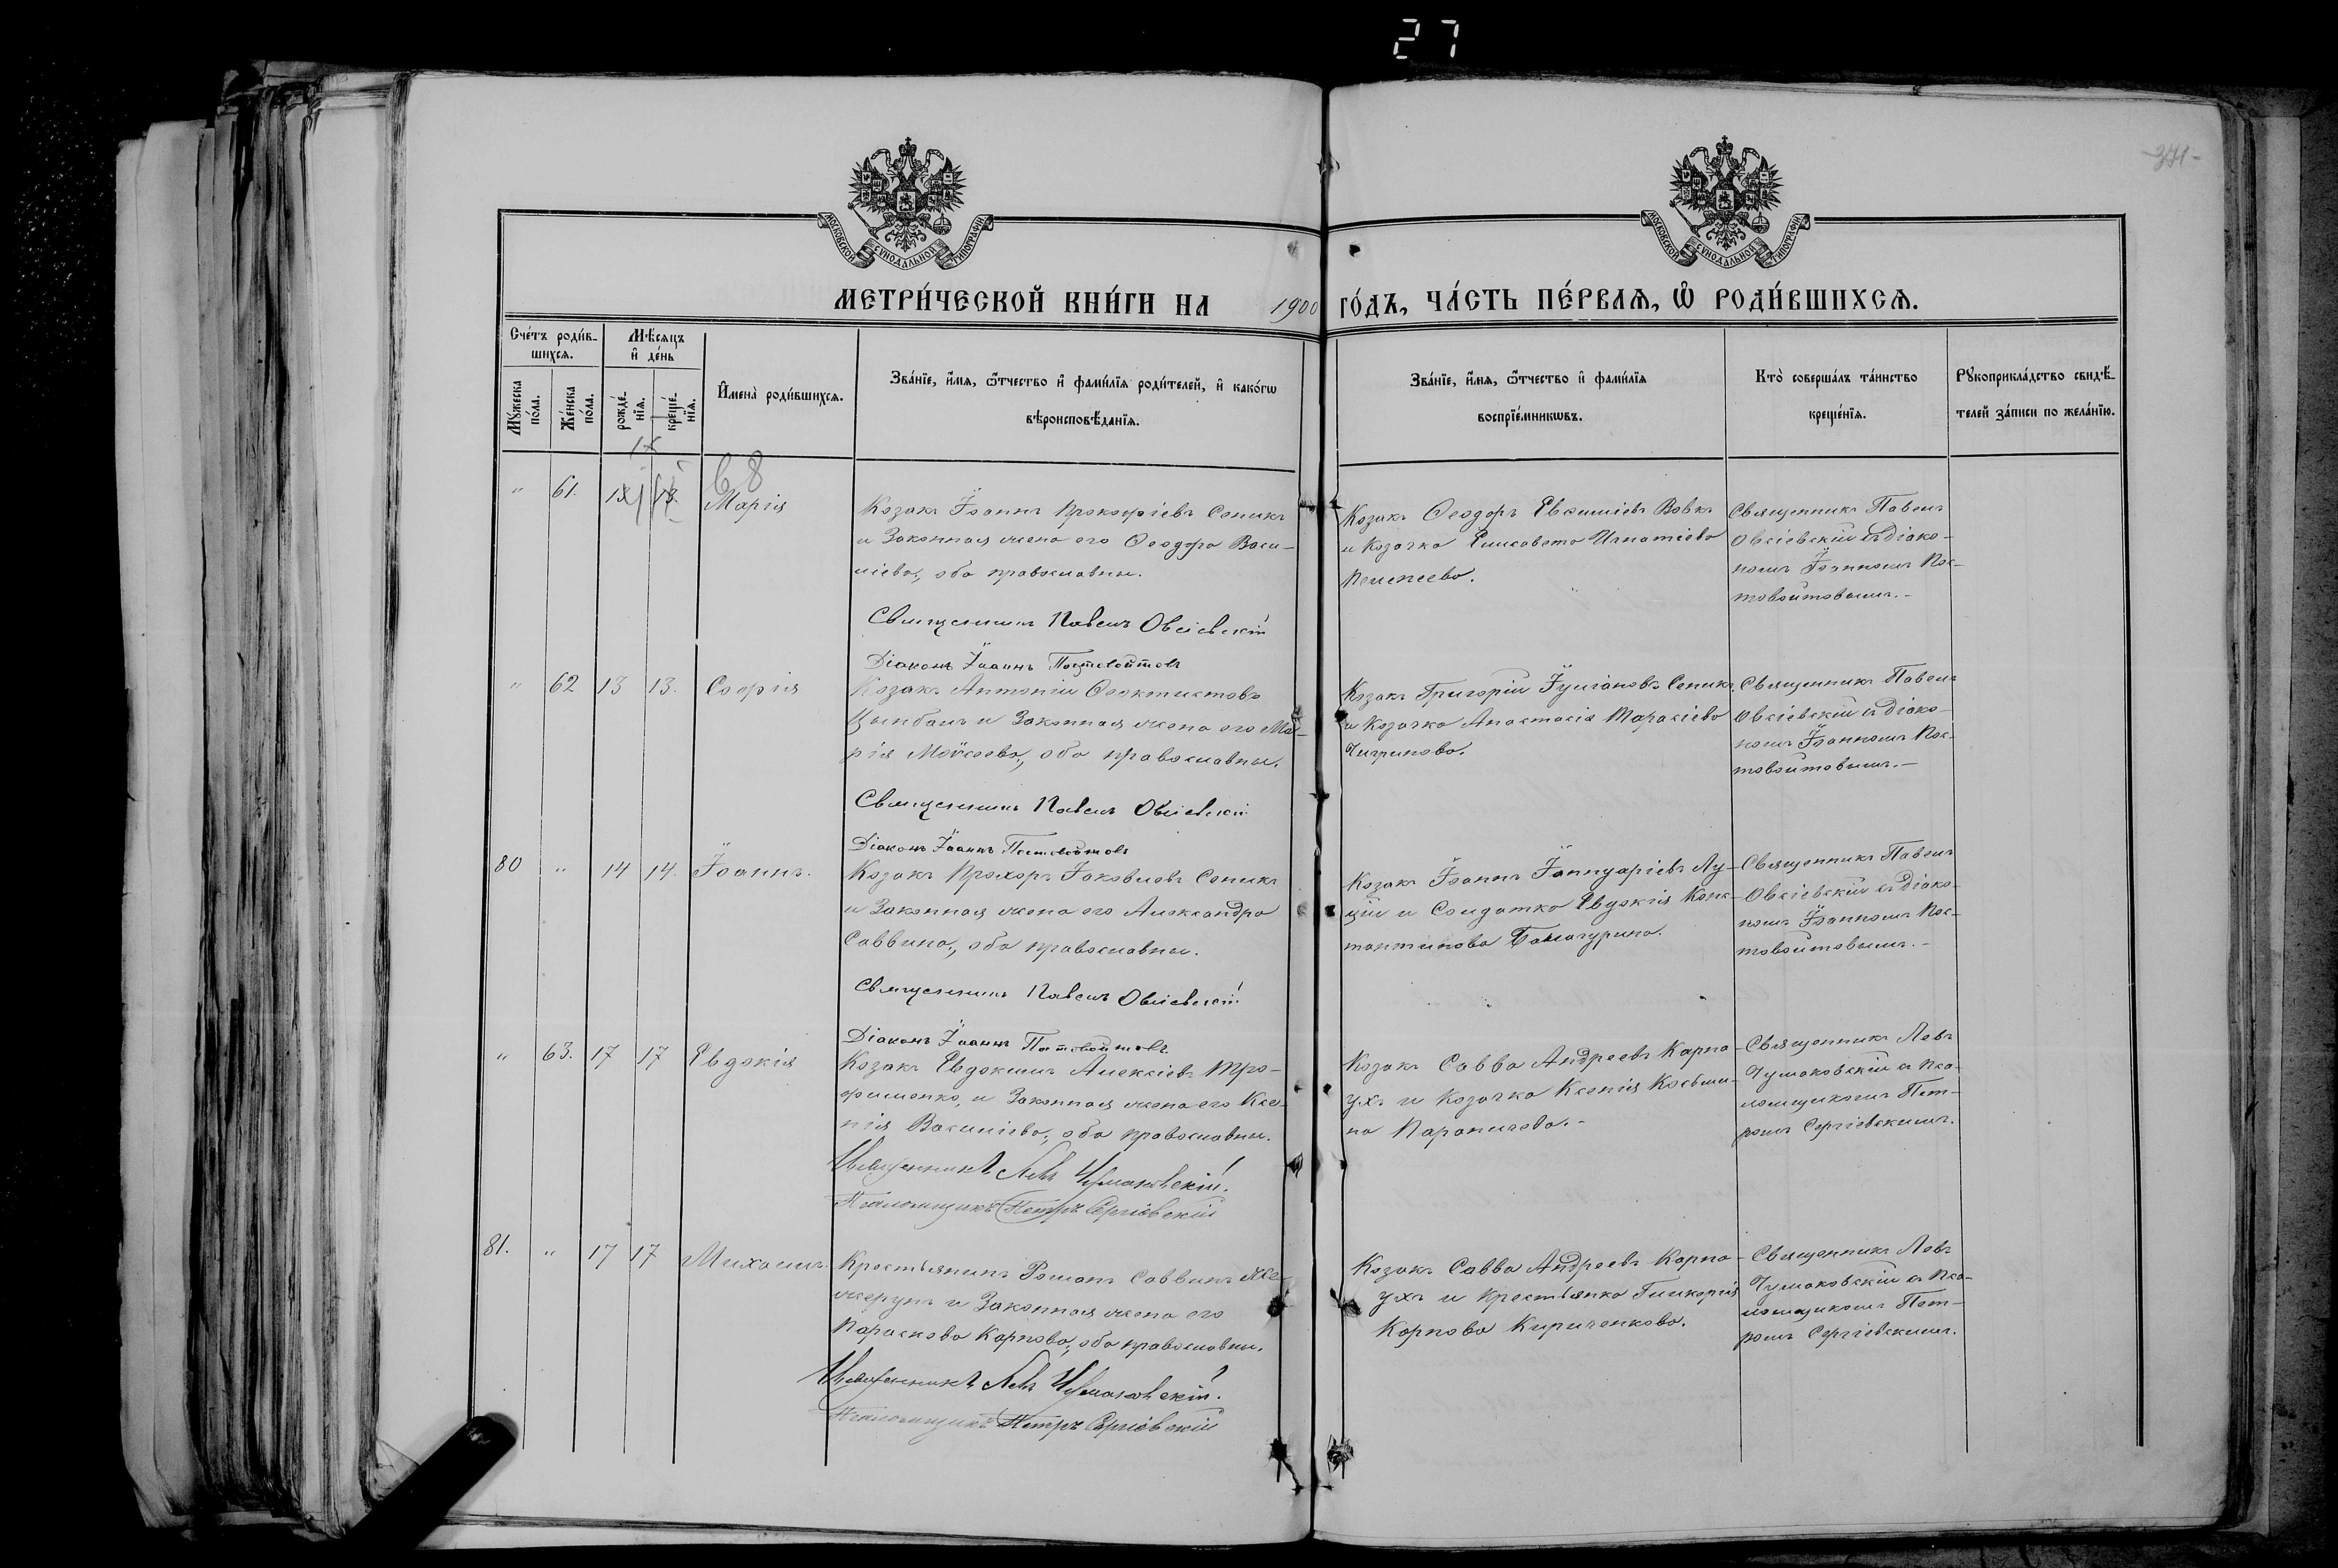 27
371
МОСКОВСКОЙ СѴНОДАЛЬНОЙ ТИПОГРАФІИ
МОСКОВСКОЙ СѴНОДАЛЬНОЙ ТИПОГРАФІИ
МЕТРИ́ЧЕСКОЙ КНИ́ГИ НА 1900 ГО́ДЪ, ЧА́СТЬ ПЕ́РВАѦ, Ѡ҆ РОДИ́ВШИХСѦ.
Сче́тъ роди́в-
шихсѧ.
Мѣ́сѧцъ
и҆ де́нь
Мꙋ́жеска
по́ла.
Же́нска
по́ла.
рожде́-
нїѧ.
креще́-
нїѧ.
И҆мена̀ роди́вшихсѧ.
Зва́нїе, и҆́мѧ, ѻ҆́тчество и҆ фами́лїѧ роди́телей, и҆ како́гѡ
вѣроисповѣ́данїѧ.
Зва́нїе, и҆́мѧ, ѻ҆́тчество и҆ фами́лїѧ
воспрїе́мникѡвъ.
Кто̀ соверша́лъ та́инство
креще́нїѧ.
Рꙋкоприкла́дство свидѣ́-
телей за́писи по жела́нїю.
68
" 61. 13 13. Марія
Козакъ Іоаннъ Прокофіевъ Сеникъ
и Законная жена его Ѳеодора Васи-
ліева, оба православны.
Священникъ Павелъ Овсіевскій
Діаконъ Іоаннъ Постовойтовъ
Козакъ Ѳеодоръ Евѳиміевъ Вовкъ
и Козачка Елисавета Игнатіева
Священникъ Павелъ
Овсіевскій съ Діако-
номъ Іоанномъ Пос-
товойтовымъ.-
" 62 13 13. Софія
Козакъ Антоній Ѳеоктистовъ
Цымбалъ и Законная жена его Ма-
рія Моѵсеева, оба православны.
Священникъ Павелъ Овсіевскій
Діаконъ Іоаннъ Постовойтовъ
Козакъ Григорій Іуліановъ Сеникъ
и Козачка Анастасія Тарасіева
Чигринова.
Священникъ Павелъ
Овсіевскій съ Діако-
номъ Іоанномъ Пос-
товойтовымъ.-
80 " 14 14. Іоаннъ.
Козакъ Прохоръ Іаковлевъ Сеникъ
и Законная жена его Александра
Саввина, оба православны.
Священникъ Павелъ Овсіевскій
Діаконъ Іоаннъ Постовойтовъ
Козакъ Іоаннъ Іаннуаріевъ Лу-
цій и Солдатка Евдокія Конс-
тантинова
Священникъ Павелъ
Овсіевскій съ Діако-
номъ Іоанномъ Пос-
товойтовымъ.-
" 63. 17 17 Евдокія
Козакъ Евдокимъ Алексіевъ Тро-
фименко, и Законная жена его Ксе-
нія Василіева, оба православны.
Священникъ Левъ Чумаковскій.
Псаломщикъ Петръ Сергіевскій
Козакъ Савва Андреевъ Карпа-
ухъ и Козачка Ксенія Косьми-
на
Священникъ Левъ
Чумаковскій съ Пса-
ломщикомъ Пет-
ромъ Сергіевскимъ.
81. " 17 17 Михаилъ.
Крестьянинъ Романъ Саввинъ Же-
жерунъ и Законная жена его
Параскева Карпова, оба православны.
Священникъ Левъ Чумаковскій.
Псаломщикъ Петръ Сергіевскій
Козакъ Савва Андреевъ Карпа-
ухъ и Крестьянка Гликерія
Карпова Кириченкова.
Священникъ Левъ
Чумаковскій съ Пса-
ломщикомъ Пет-
ромъ Сергіевскимъ.